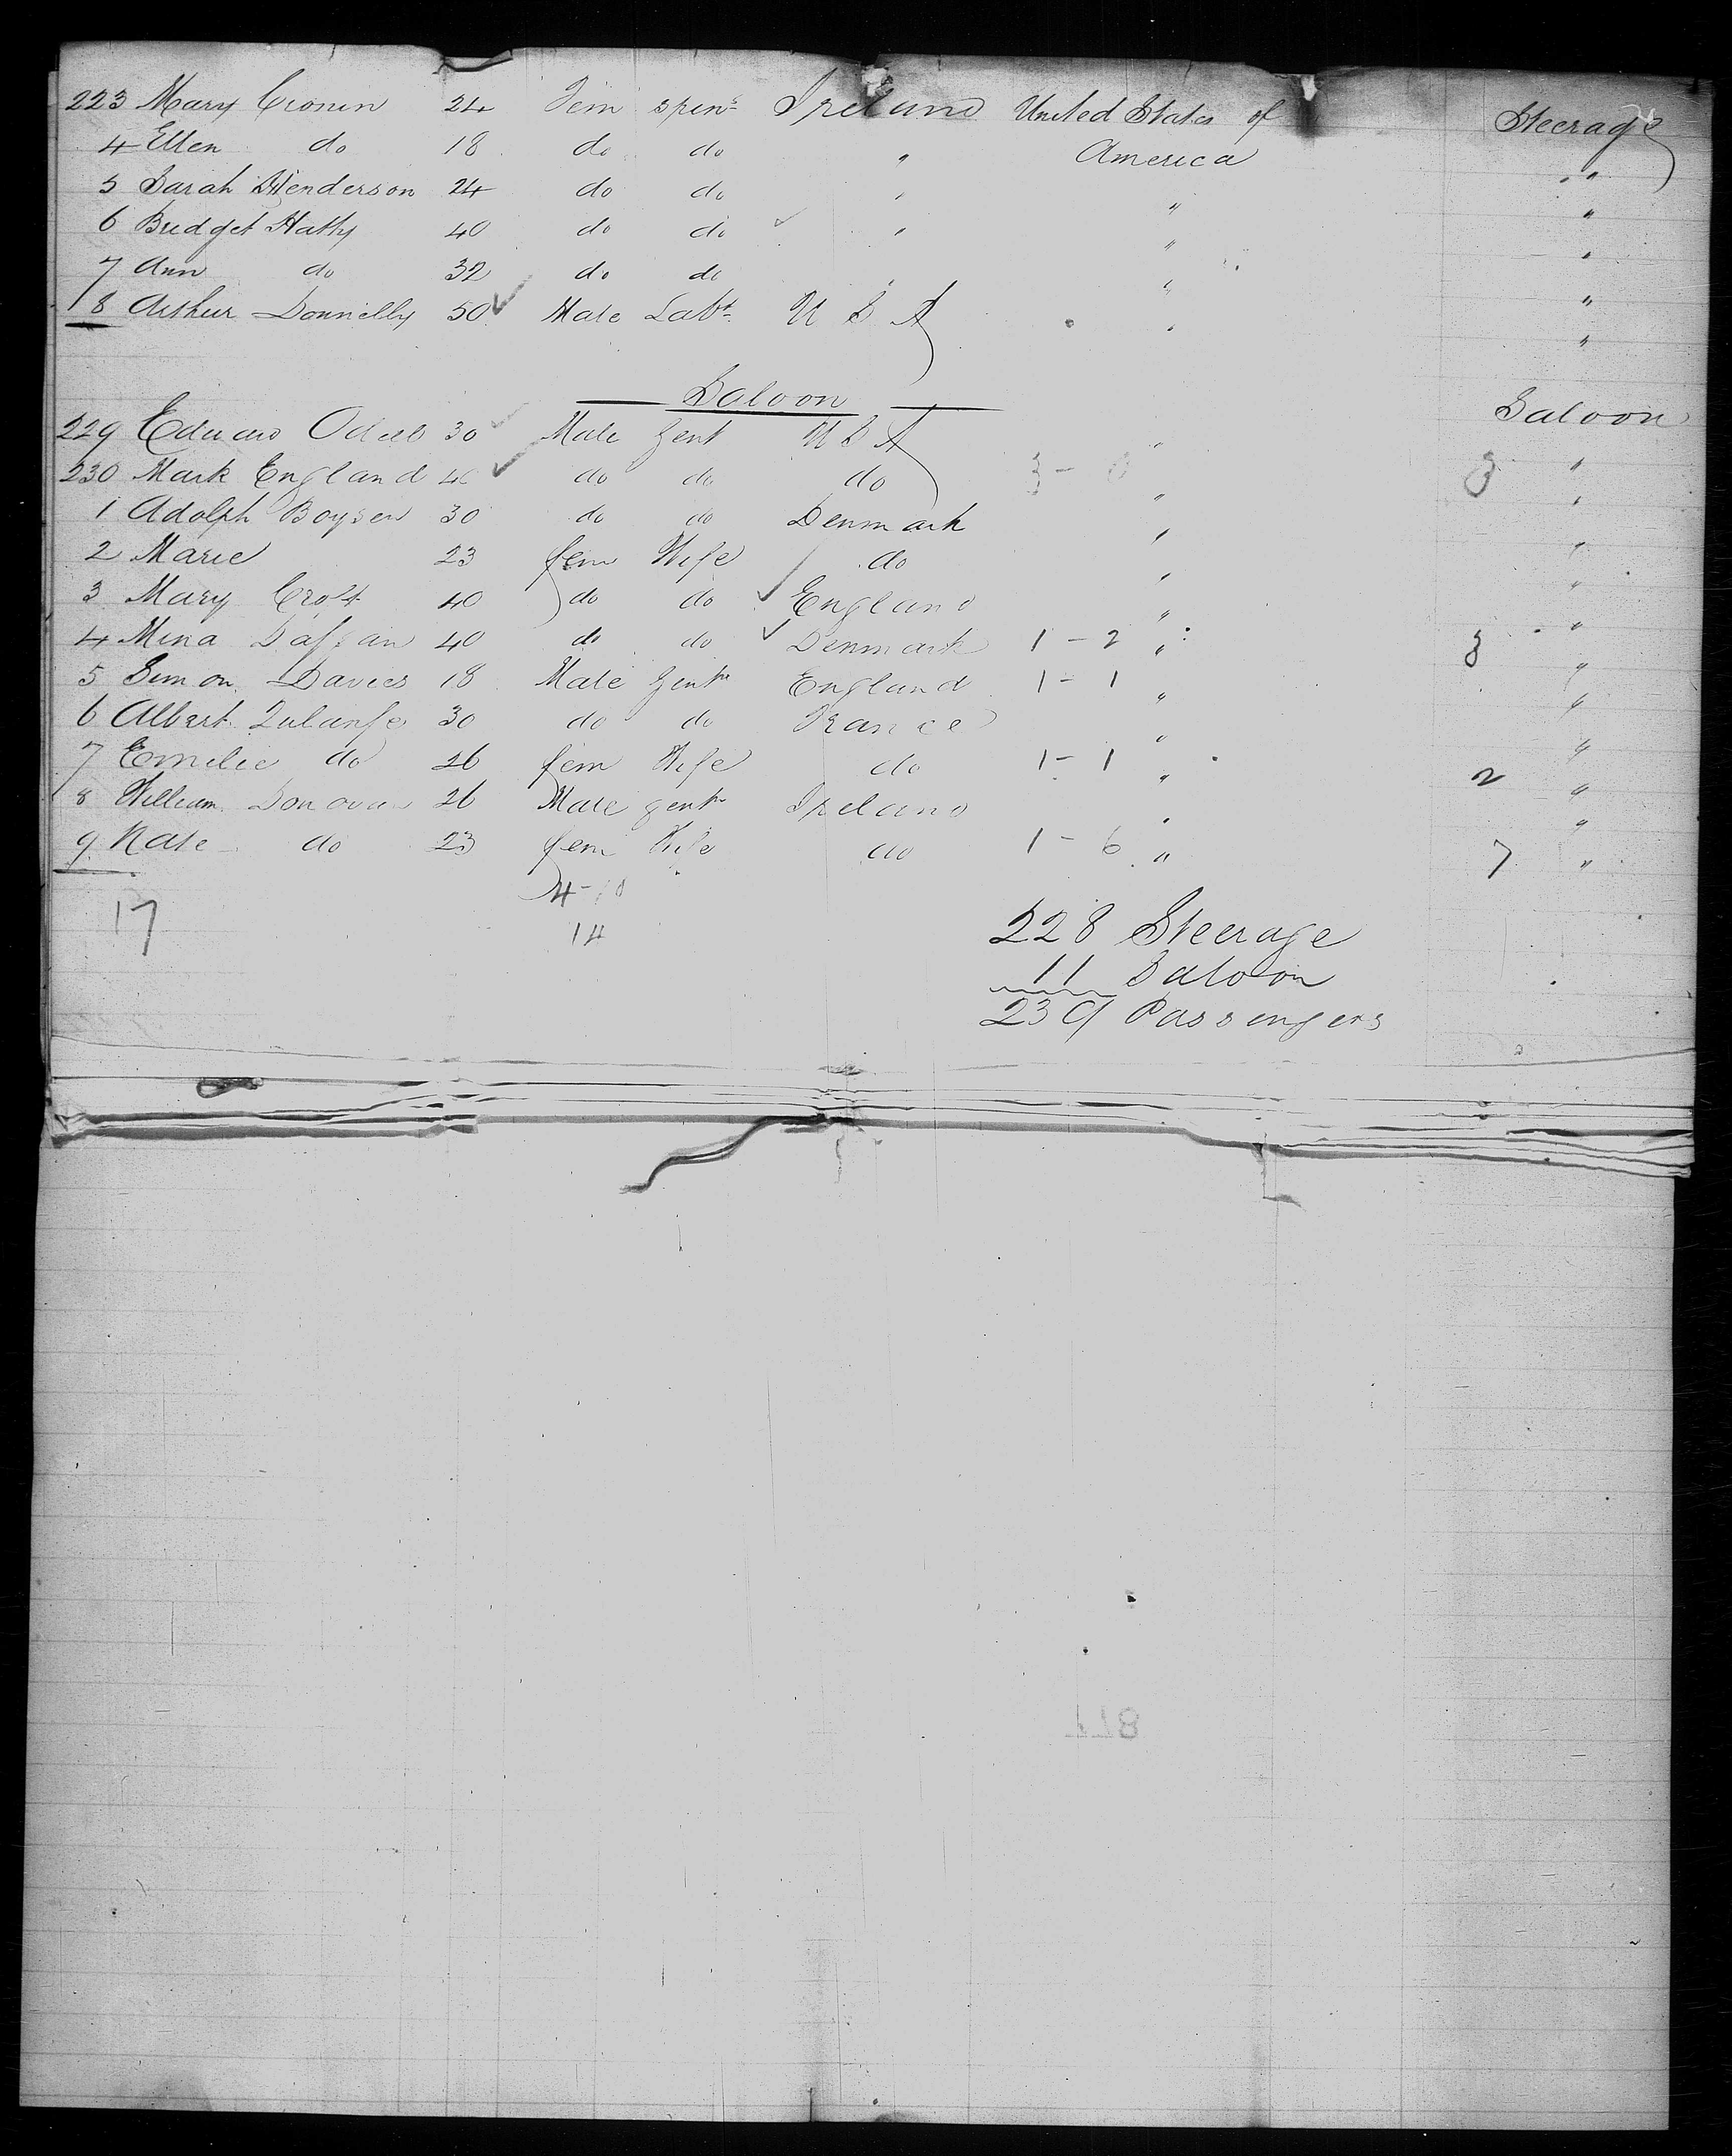 223 Mary Cronin 24 Fem spins Ireland United States of Steerage
4 Ellen do 18 do do " America "
5 Sarah Henderson 24 do do " " "
6 Bridget Hatty 40 do do " " "
7 Ann do 32 do do " " "
8 Arthur Donnelly 50 Male Labr U S A " "
Saloon
Saloon
229 Edward Odell 30 Male Gent U S A " "
230 Mark England 40 do do do 3 - 0 " 3 "
1 Adolph Boysen 30 do do Denmark " "
2 Marie 23 fem Wife do " "
3 Mary Croft 40 do do England " "
4 Mina 40 do do Denmark 1 - 2 " 3 "
5 Simon Davies 18 Male Gentn England 1 - 1 " "
6 Albert 30 do do France " "
7 Emilie do 26 fem Wife do 1 - 1 " 2 "
8 William Donovan 26 Male gentn Ireland " "
9 Kate do 23 fem Wife do 1 - 6 " 7 "
17 4 -
14
228 Steerage
11 Saloon
239 Passengers